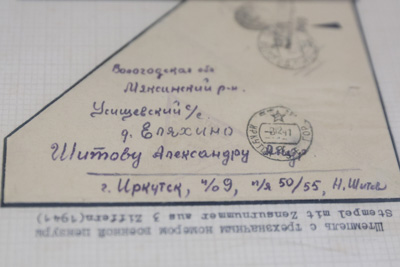 Вологодская обл
Мяксинский р-н.
Усищевский с/с
д. Еляхино
Шитову Александру
г. Иркутск, п/о 9, п/я 50/55, Н. Шитов
Штемпель с трехзначным номером военной цензуры
Stempel mit Zensurnummer aus 3 Ziffern (1941)